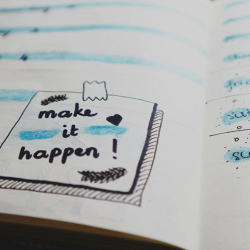 make
it
happen!